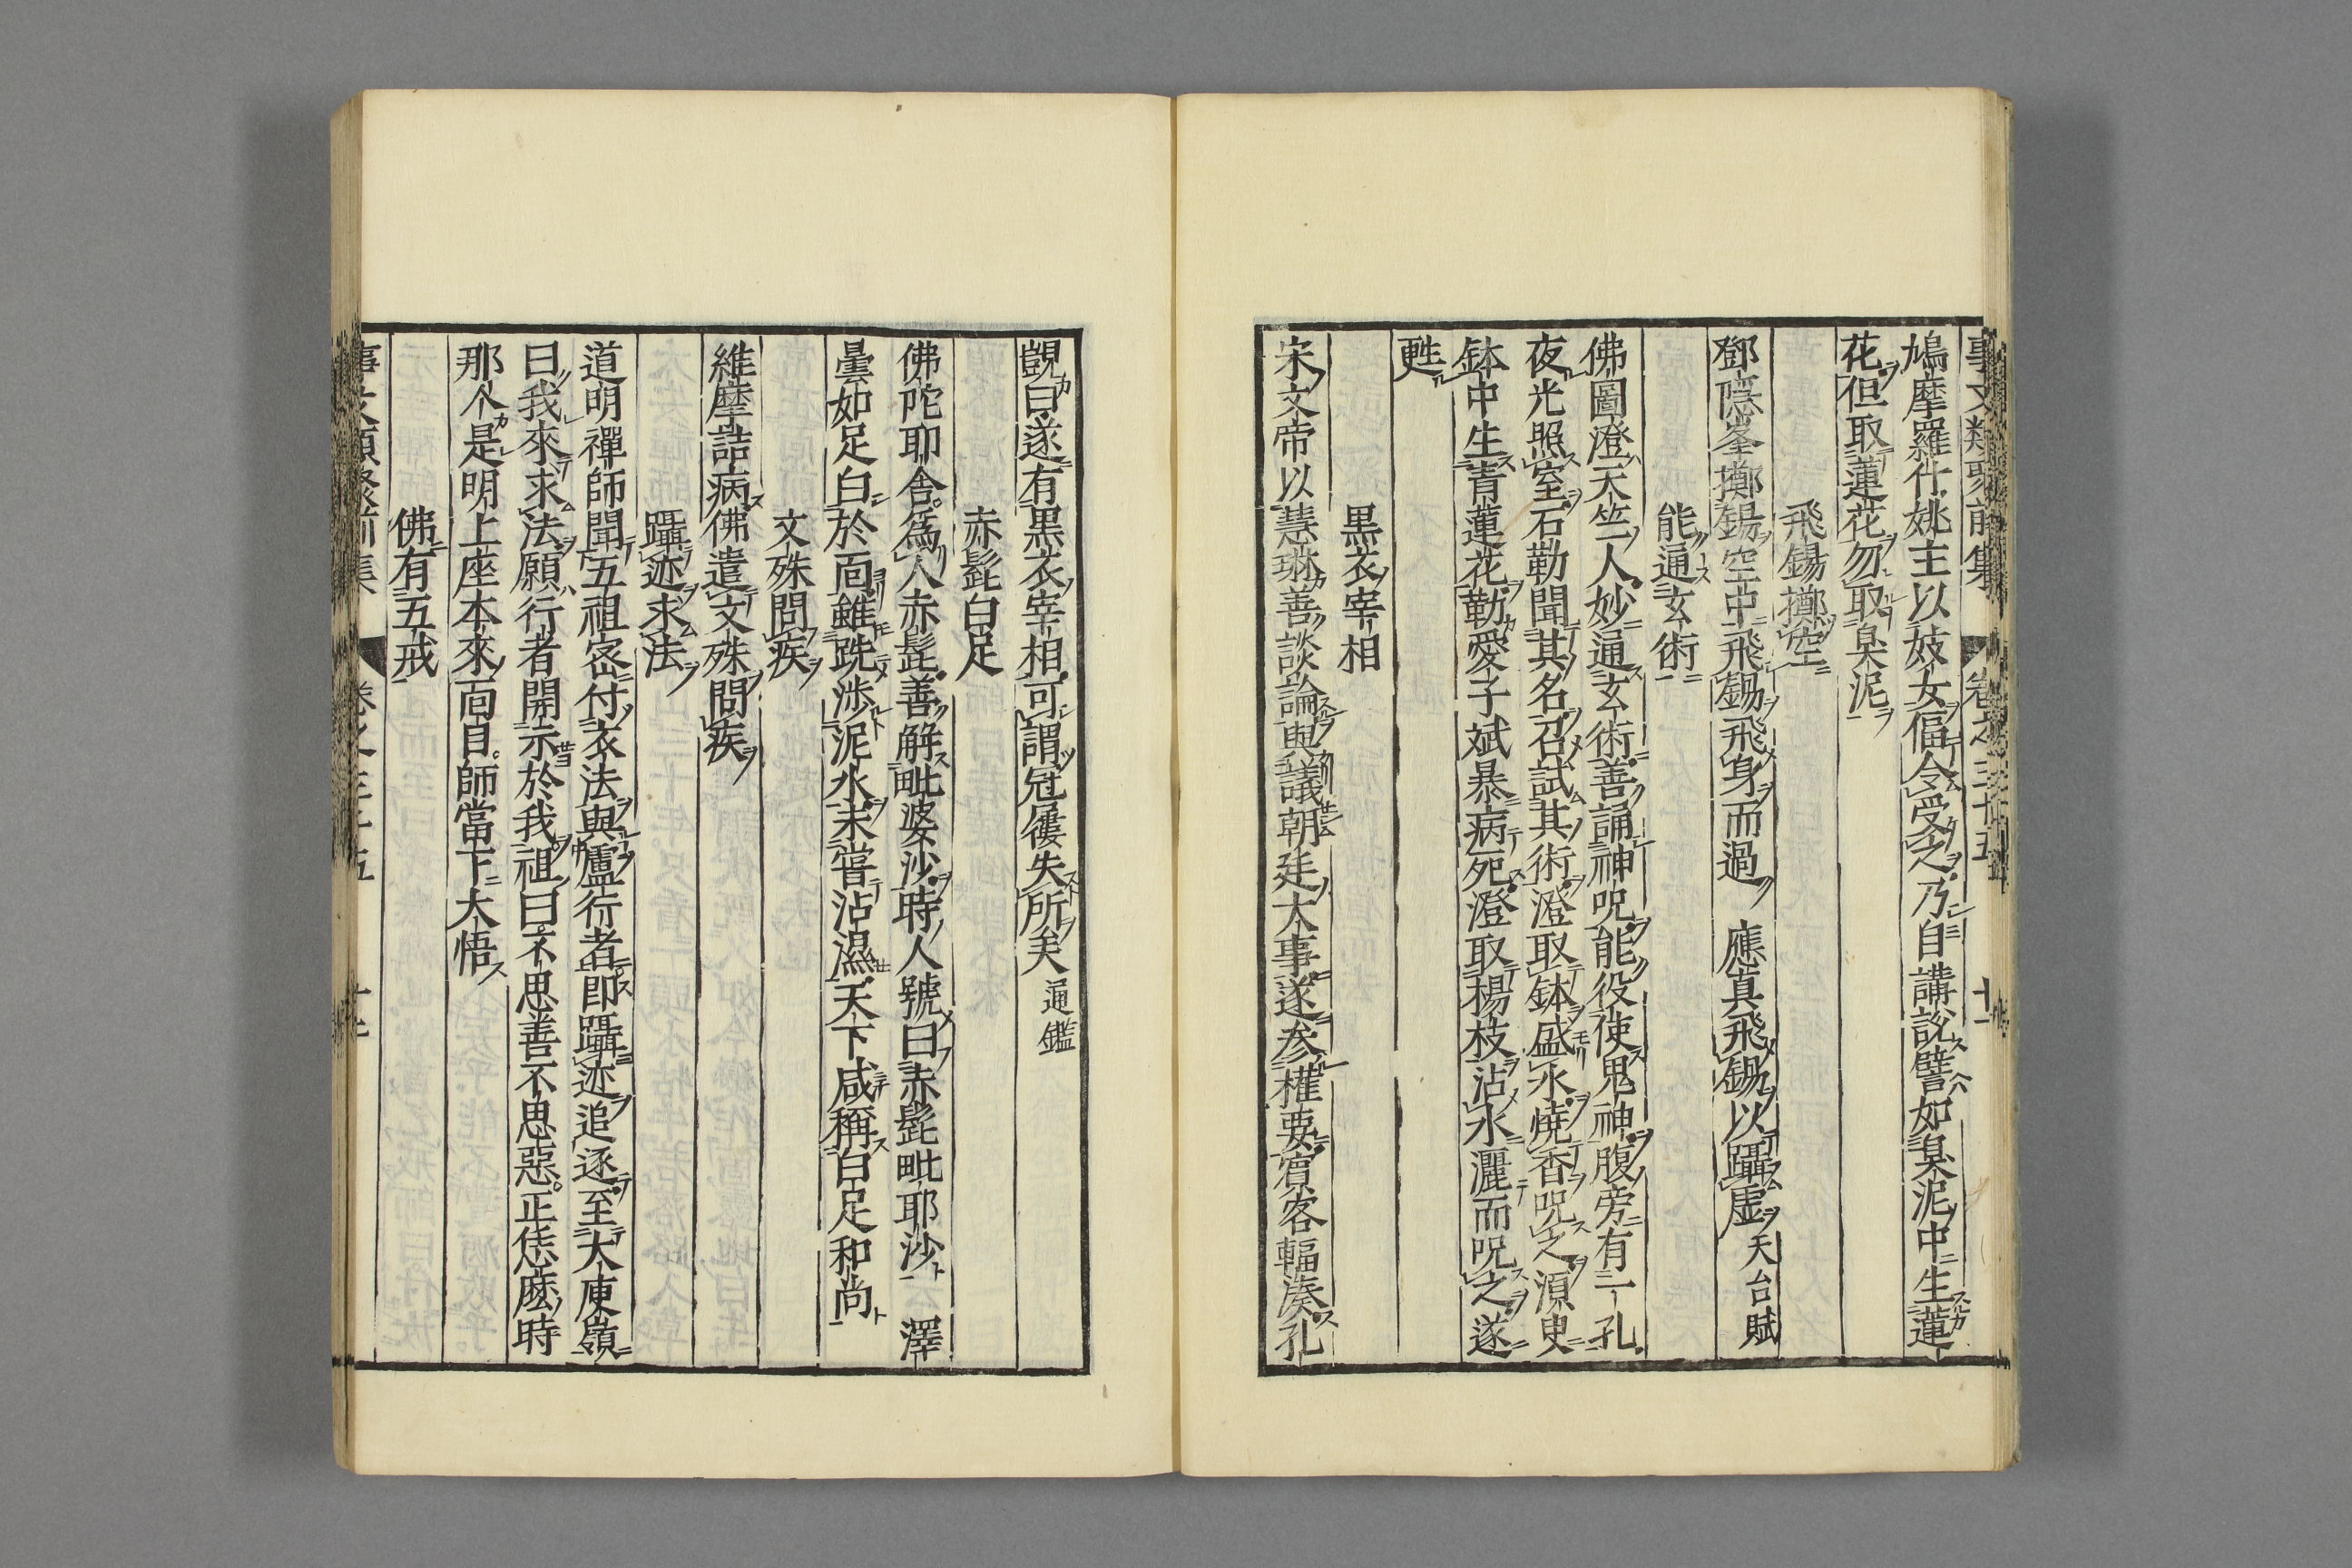 事文類聚前集 卷之三十五 十一
鳩摩羅什姚主以妓女偪令受之乃自講說譬如臭泥中生蓮
花但取蓮花勿取臭泥
飛錫擲空
鄧隱峯擲錫空中飛錫飛身而過 應真飛錫以躡虛天台賦
能通玄術
佛圖澄天竺人妙通玄術善誦神呪能役使鬼神腹旁有一孔
夜光照室石勒聞其名召試其術澄取鉢盛水燒香呪之湏臾
鉢中生青蓮花勒愛子斌暴病死澄取楊枝沾水灑而呪之遂
甦
黒衣宰相
宋文帝以慧琳善談論與議朝廷大事遂參權要賔客輻湊孔
覬曰遂有黒衣宰相可謂冠屨失所矣通鑑
赤髭白足
佛陀耶舍爲人赤髭善解毗婆沙時人號曰赤髭毗耶沙 澤
曇如足白於面雖跣渉泥水未甞沾濕天下咸稱白足和尚
文殊問疾
維摩詰病佛遣文殊問疾
躡迹求法
道明禪師聞五祖密付衣法與盧行者即躡迹追逐至大庾嶺
曰我來求法願行者開示於我祖曰不思善不思惡正恁麽時
那个是明上座本來面目師當下大悟
佛有五戒
事文類聚前集 卷之三十五